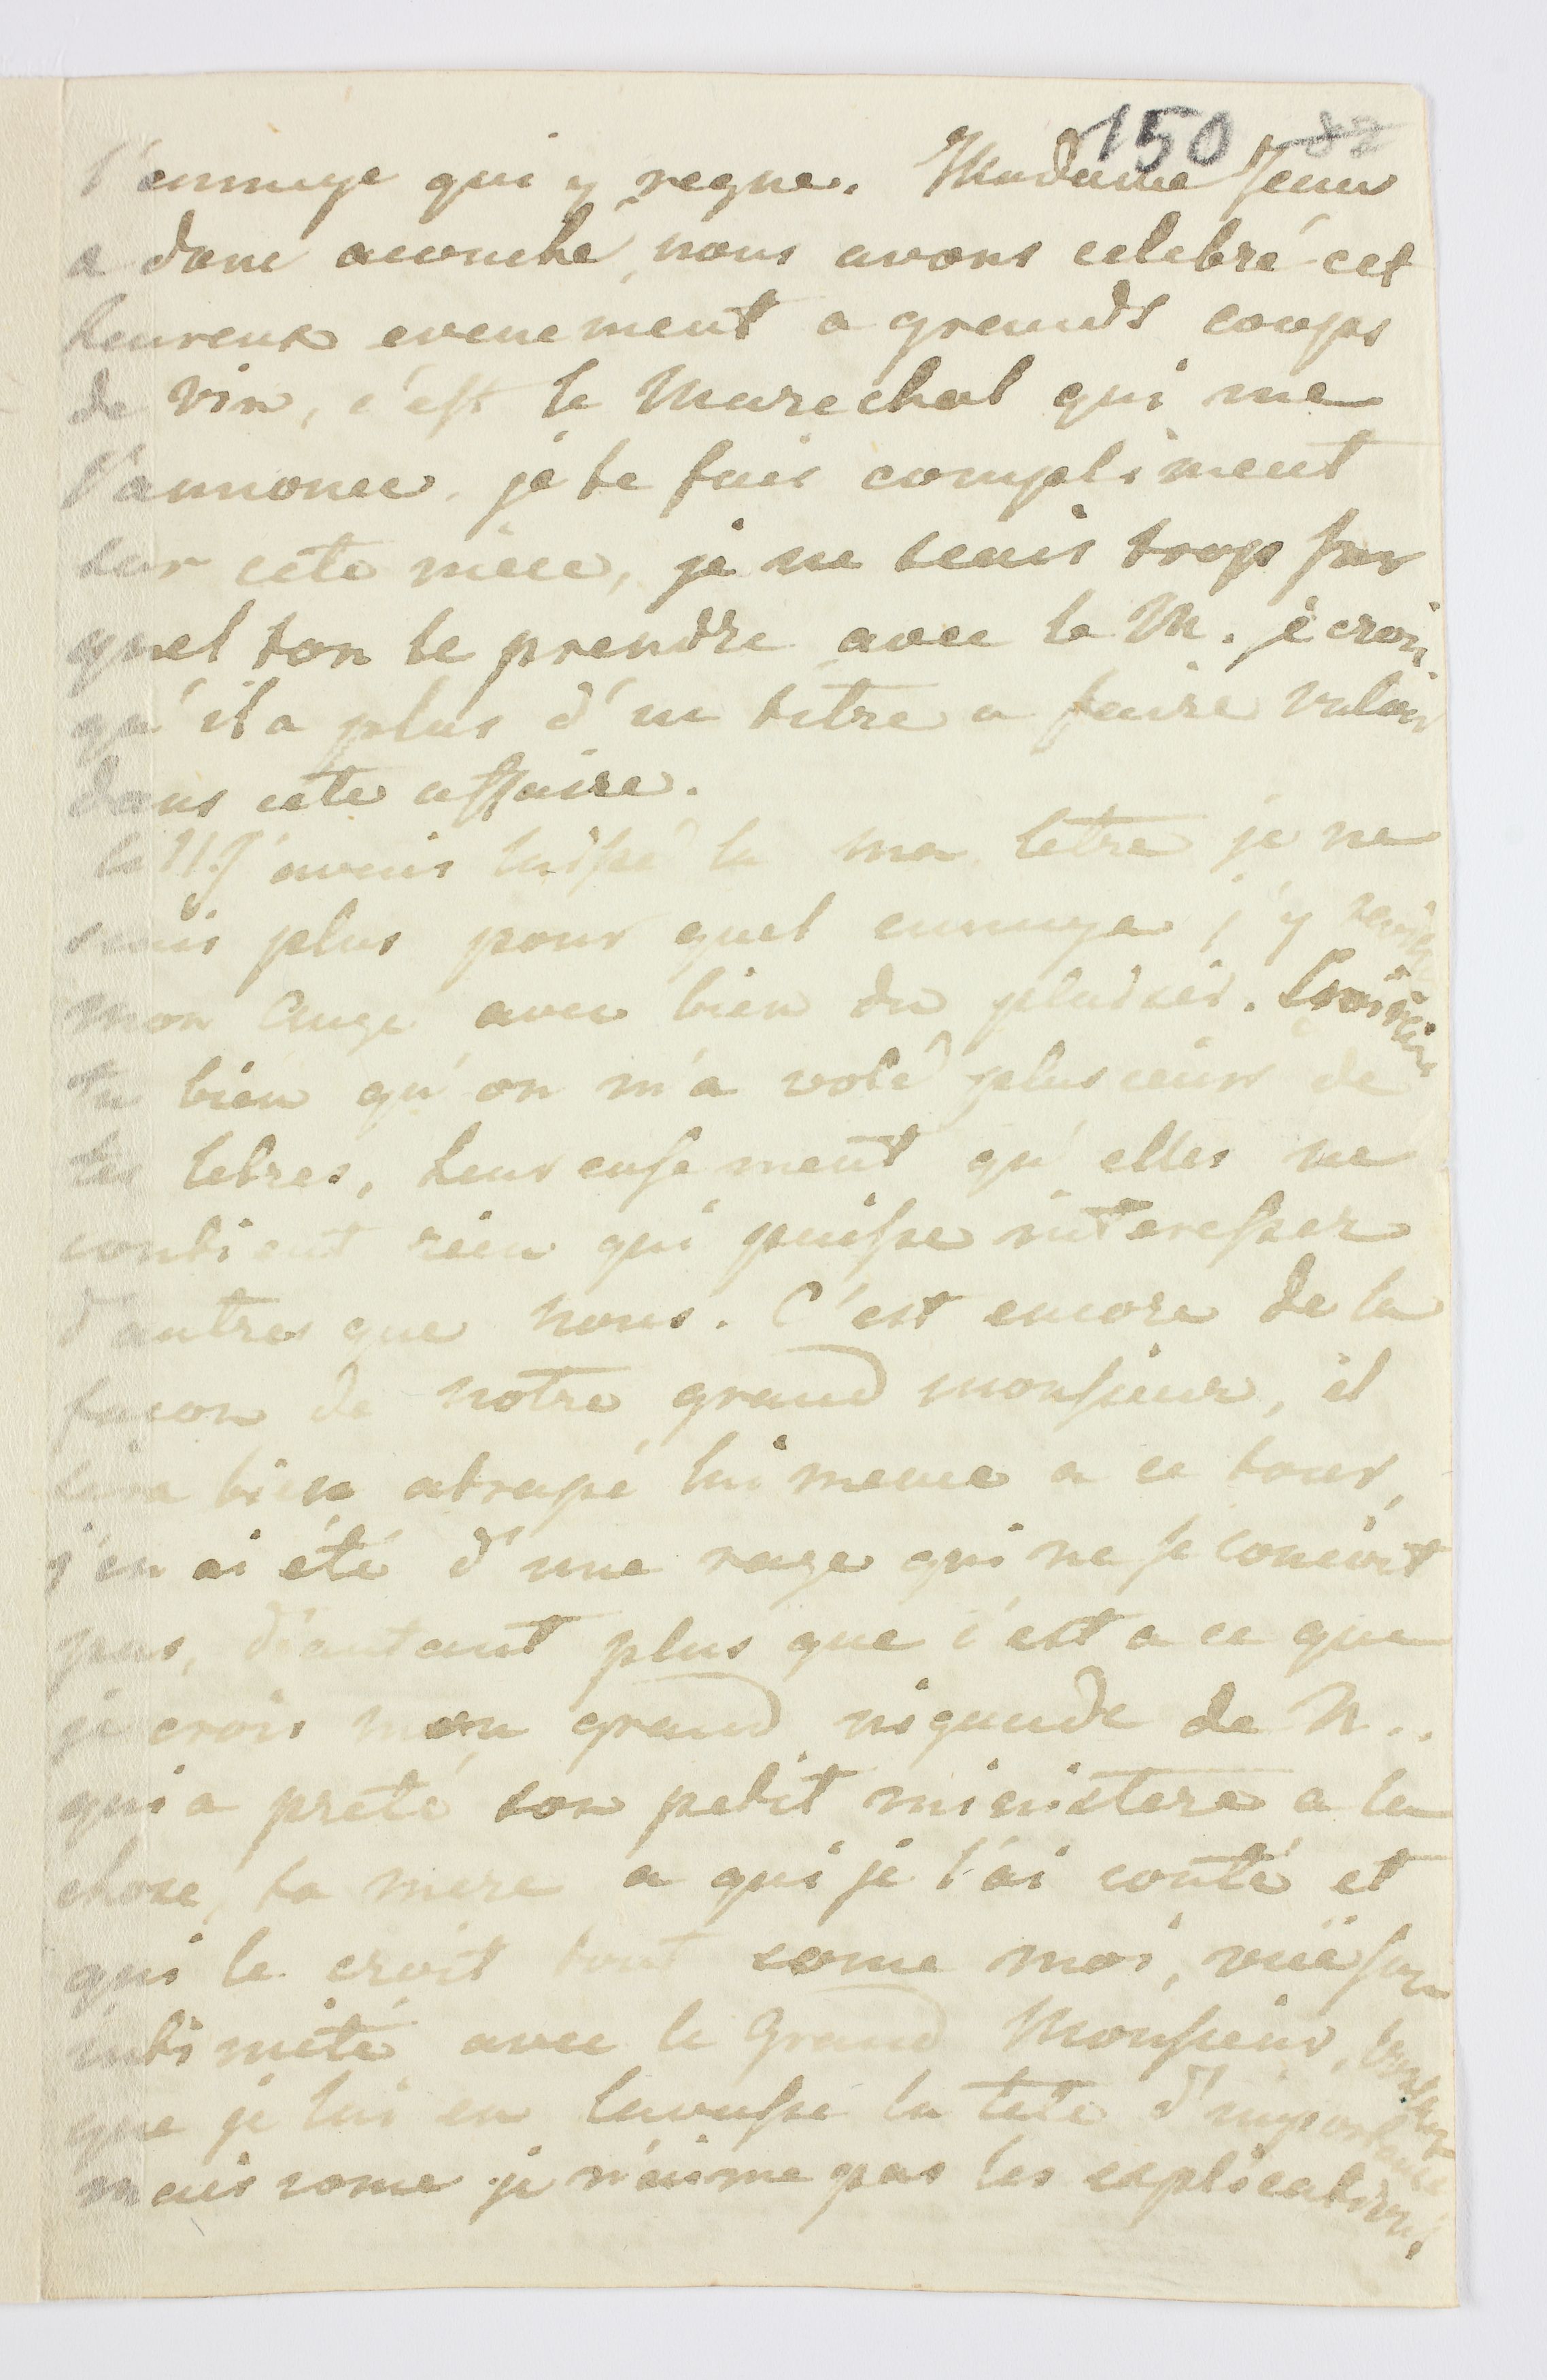 150 82
l'ennuye qui y regne. Madame
a donc acouché, nous avons celebré cet
heureux evenement a grands coups
de vin, c'est le Marechal qui me
l'annonce. je te fais compliment
sur cete niece, je ne scais trop sur
quel ton le prendre avec le M. je crois
qu'il a plus d'un titre a faire valoir
dans cete affaire.
le 11 J'avais laissé la ma letre je ne
scais plus pour quel ennuye, j'y reviens
mon Ange avec bien du plaisir. Crois
tu bien qu'on m'a volé plusieurs de
tes letres, heureusement qu'elles ne
contient rien qui puisse interesser
d'autres que nous. C'est encore de la
façon de notre grand monsieur, il
sera bien atrapé lui meme a ce tour,
j'en ai été d'une rage qui ne se conçoit
pas, d'autant plus que c'est a ce que
je crois mon grand nigaude de N..
qui a preté son petit ministere a la
chose, ta mere a qui je l'ai conté et
qui le croit tout come moi, vuë son
intimité avec le Grand Monsieur,
que je lui en lavasse la tete d'importance
mais come je n'aime pas les explications